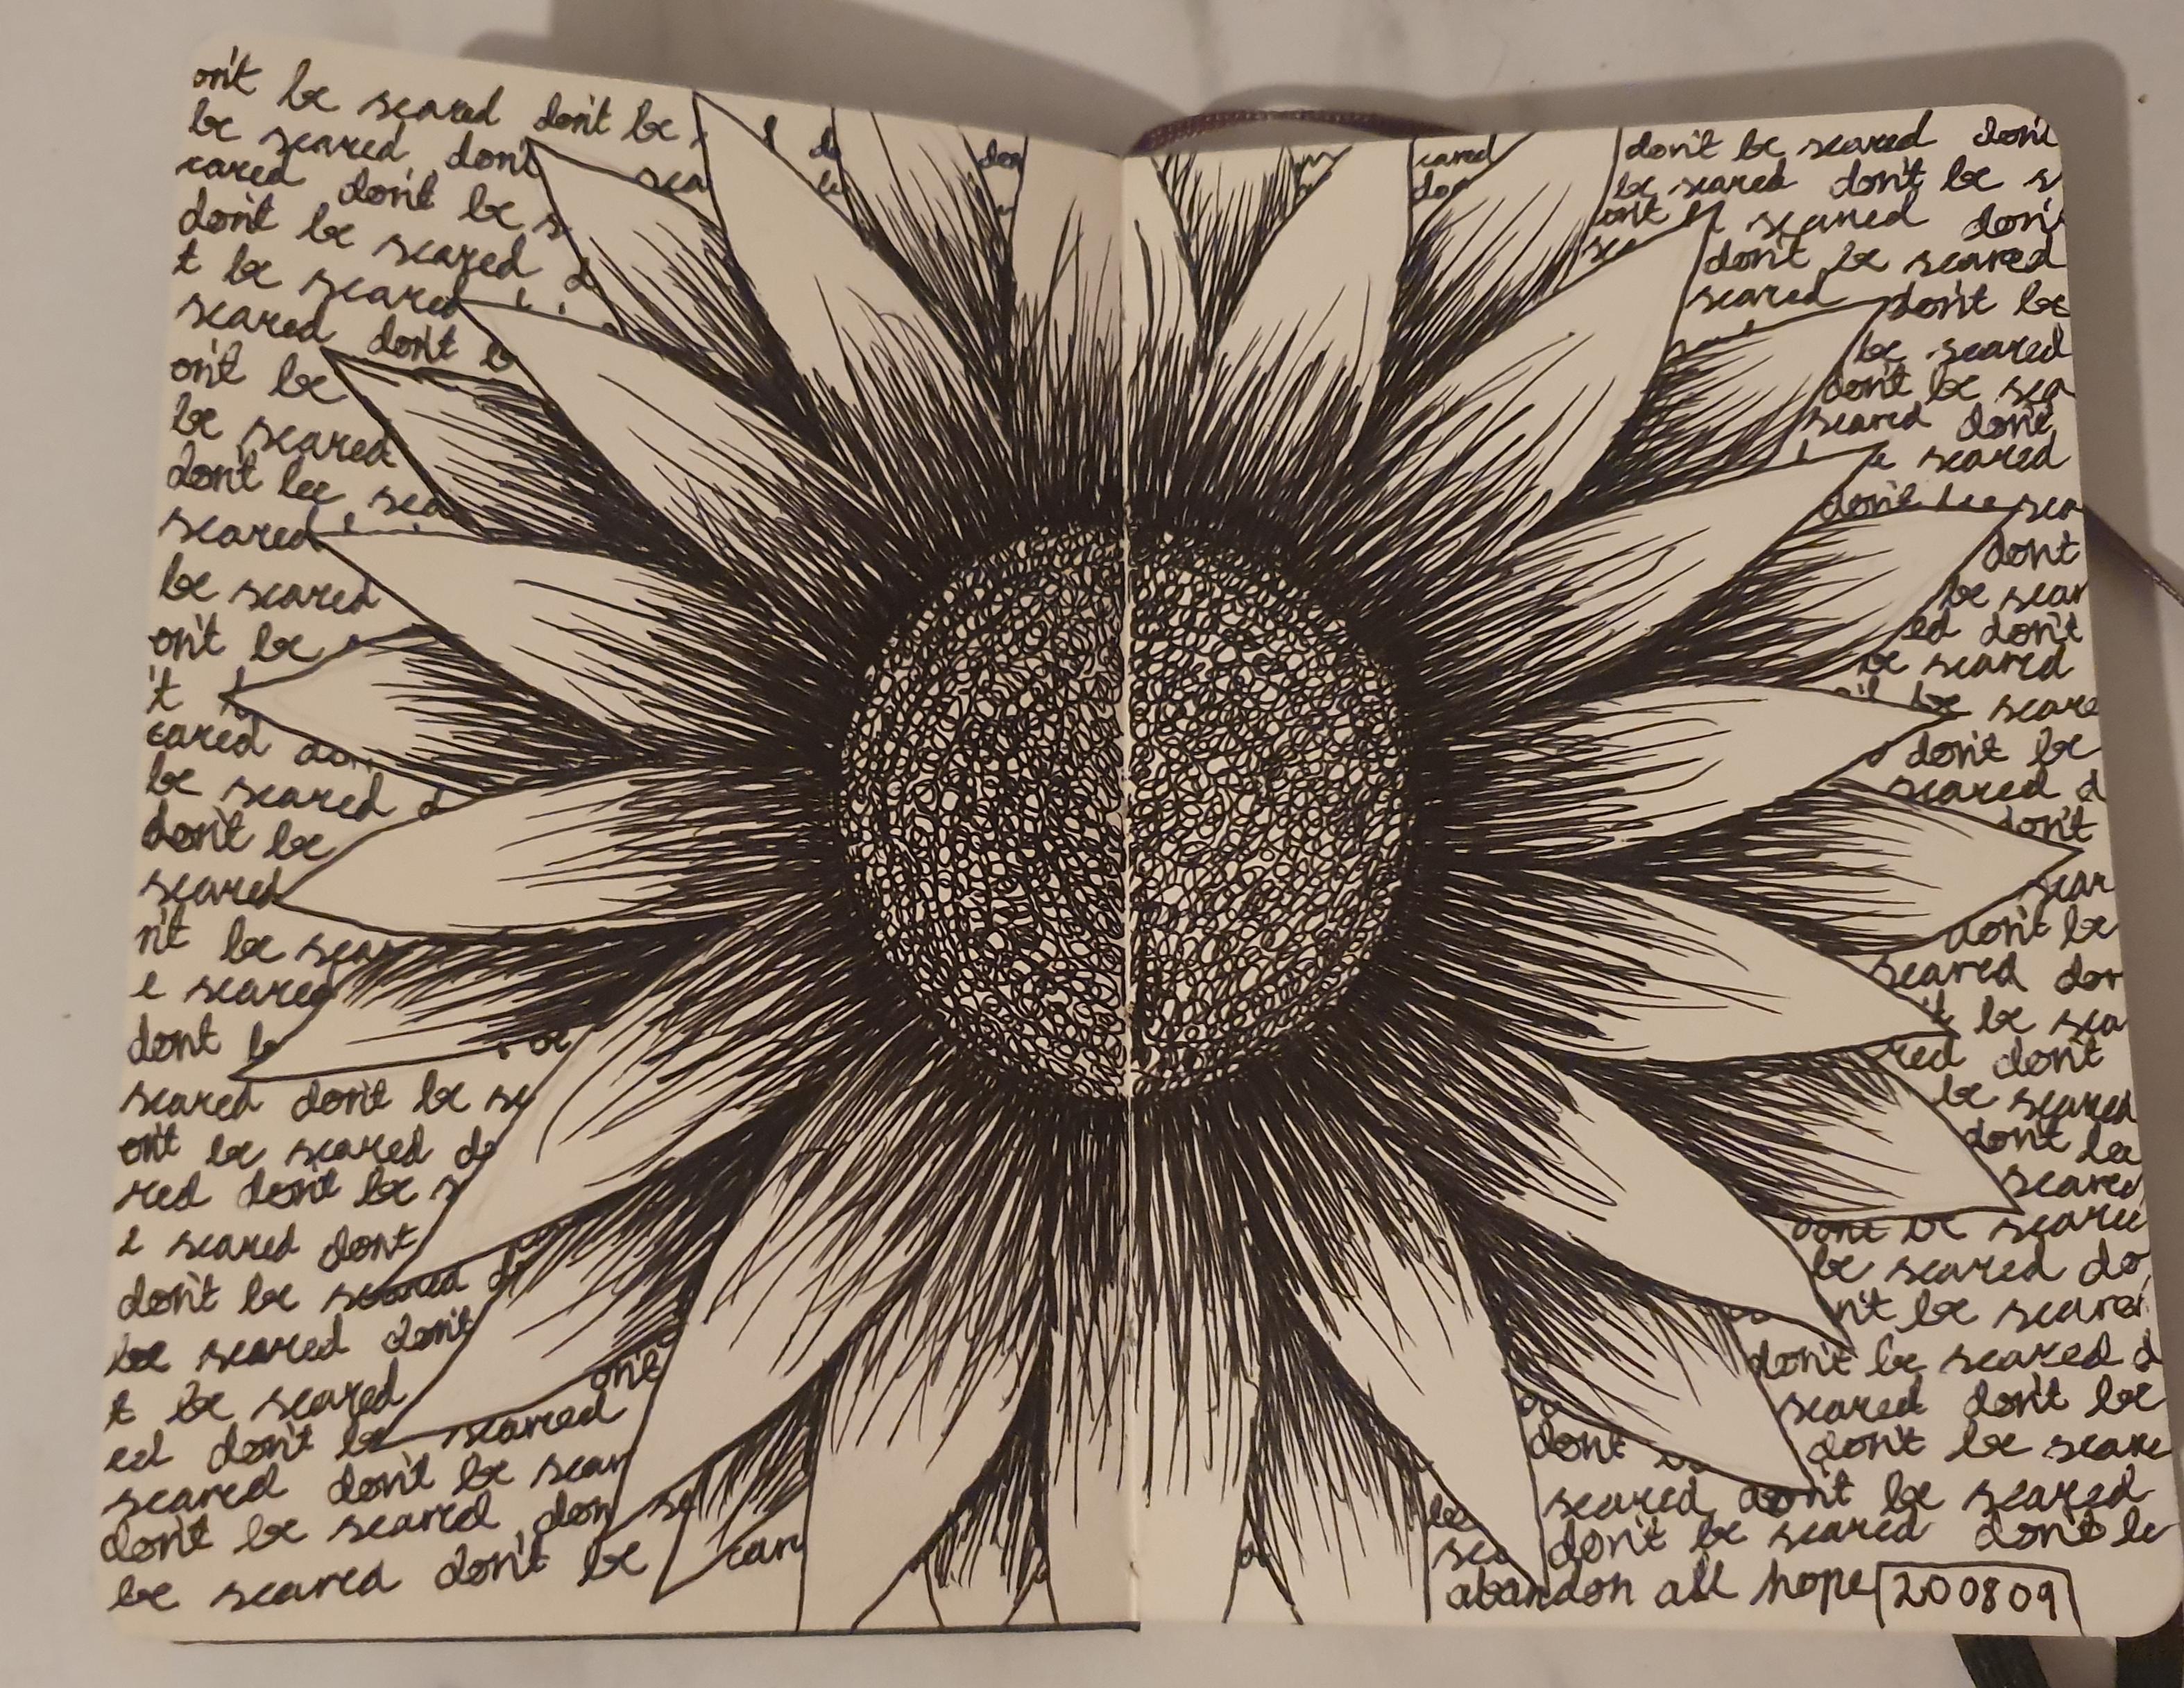 on't be scared don't be
be scared don't
sca
cared don't be s
don't be scared d
t be scared
scared don't b
on't be
be scared
don't be sca
scared
be scared
on't be
't
cared don
be scared d
don't be
scared
n't be scar
e scared
dont b
be
scared don't be sc
on't be scared do
red don't be s
e scared dont
don't be scared d
be scared don't
on't
t be scared
ed don't be scared
scared don't be scar
don't be scared don
sc
be scared don't be
car
don
cared
do
don't be scared don't
be scared don't be s
on't be scared don't
sc
don't be scared
scared don't be
be scared
don't be sca
scared dont
be scared
don't be sca
dont
be scar
ed don't
be scared
be scare
don't be
scared d
don't
scar
don't be
scared don
't be sca
red don't
be scared
dont be
scared
dont be scared
be scared do
n't be scared
don't be scared d
scared don't be
dont
don't be scare
scared don't be scared
be
don't be scared don't be
sca
abandon all hope 200809